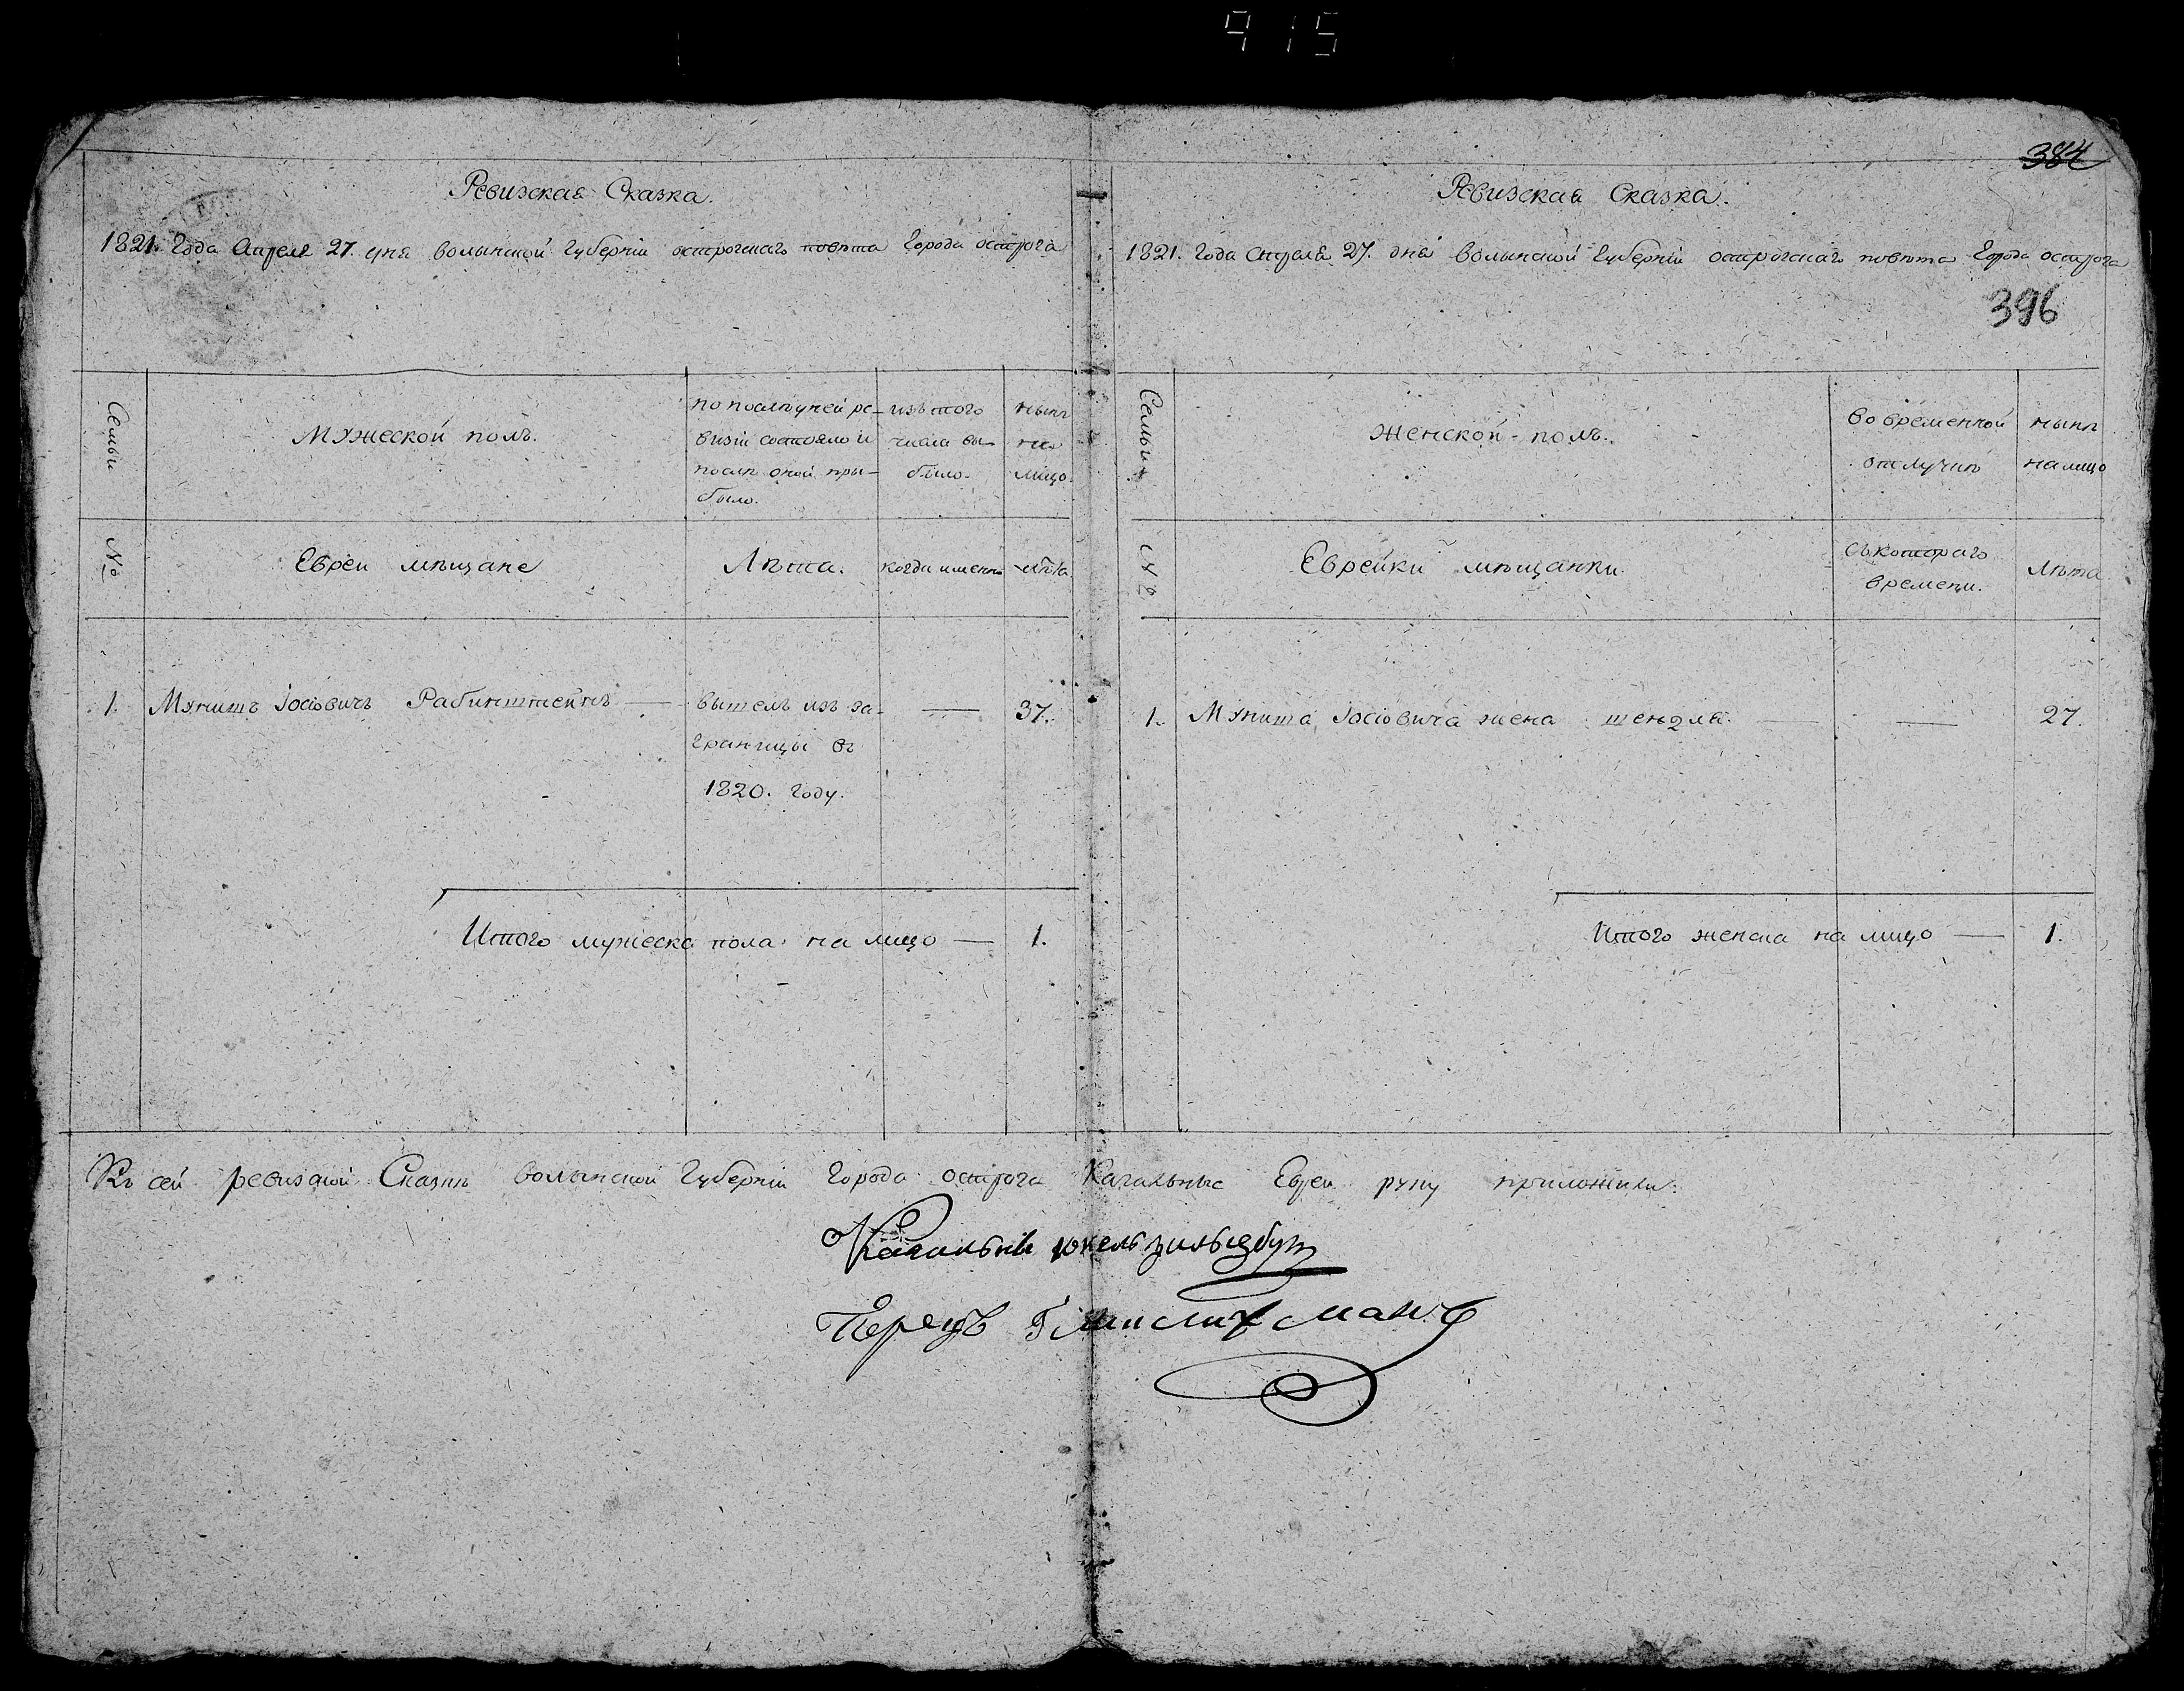 415
384
Ревизская Сказка.
1821. Года Апреля 27. дня волынской Губерніи острогскаго повѣта Города острога
Семьи
Мужеской полъ.
по послѣдней ре-
визіи состояло и
послѣ оной при-
было.
изъ того
числа вы-
было.
нынѣ
на
лицо.
№
Евреи мѣщане
Лѣта.
когда именно
лѣта
1. Мунишъ Іосіовичъ Рабинштейнъ — вышелъ изъ за- — 37.
границы въ
1820. Году.
Итого мужеска пола на лицо — 1.
Ревизская Сказка.
1821. Года Апреля 27. дня Волынской Губерніи острогскаго повѣта Города острога
396
Семьи
Женской полъ.
во временной
отлучкѣ
нынѣ
на лицо
№
Еврейки мѣщанки.
съ котораго
времени.
Лѣта
1. Муниша Іосіовича жена шендля — — 27.
Итого женска на лицо — 1.
Къ сей ревизской Сказкѣ волынской Губерніи Города острога Кагальные Евреи руку приложили.
Кагальный юкель
Перецъ